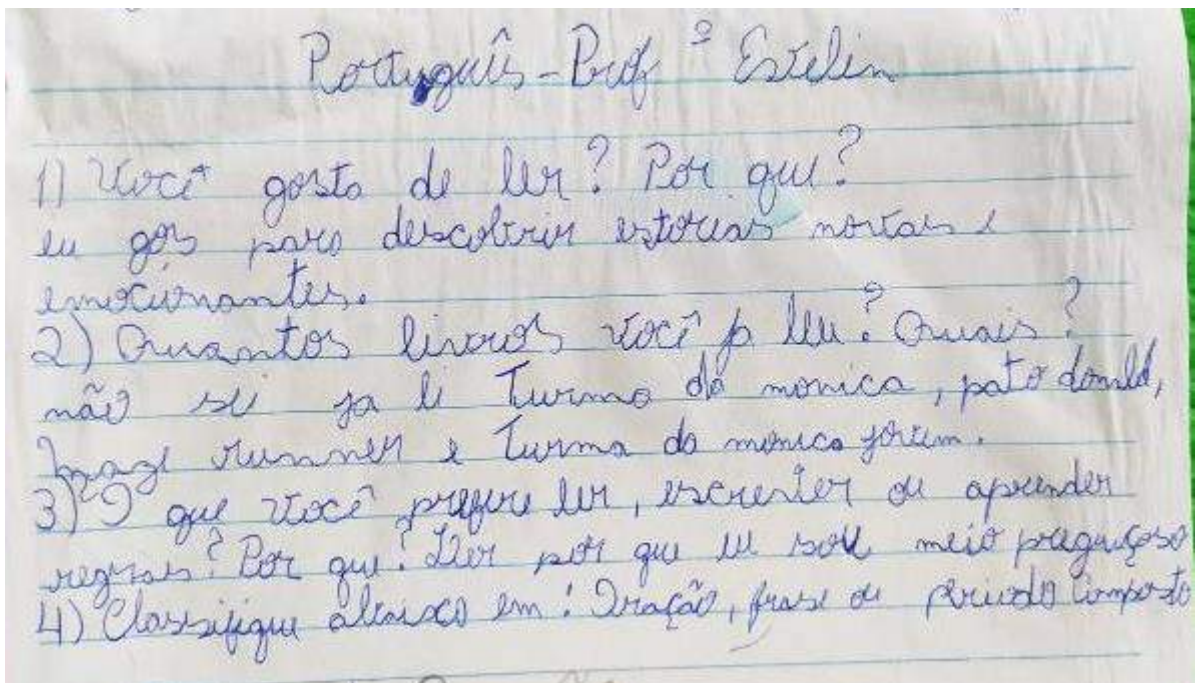 Português - Prof ª Estelin
1) Você gosta de ler? Por que?
eu gos para descobrir estorias novas e
emocionantes.
2) Quantos livros você já leu? Quais?
não sei ja li Turma da monica, pato donald,
maze runner e Turma da monica jovem.
3) O que você prefere ler, escrever ou aprender
regras? Por que? Ler por que eu sou meio preguiçoso
4) Classifique abaixo em: Oração, frase ou periodo composto